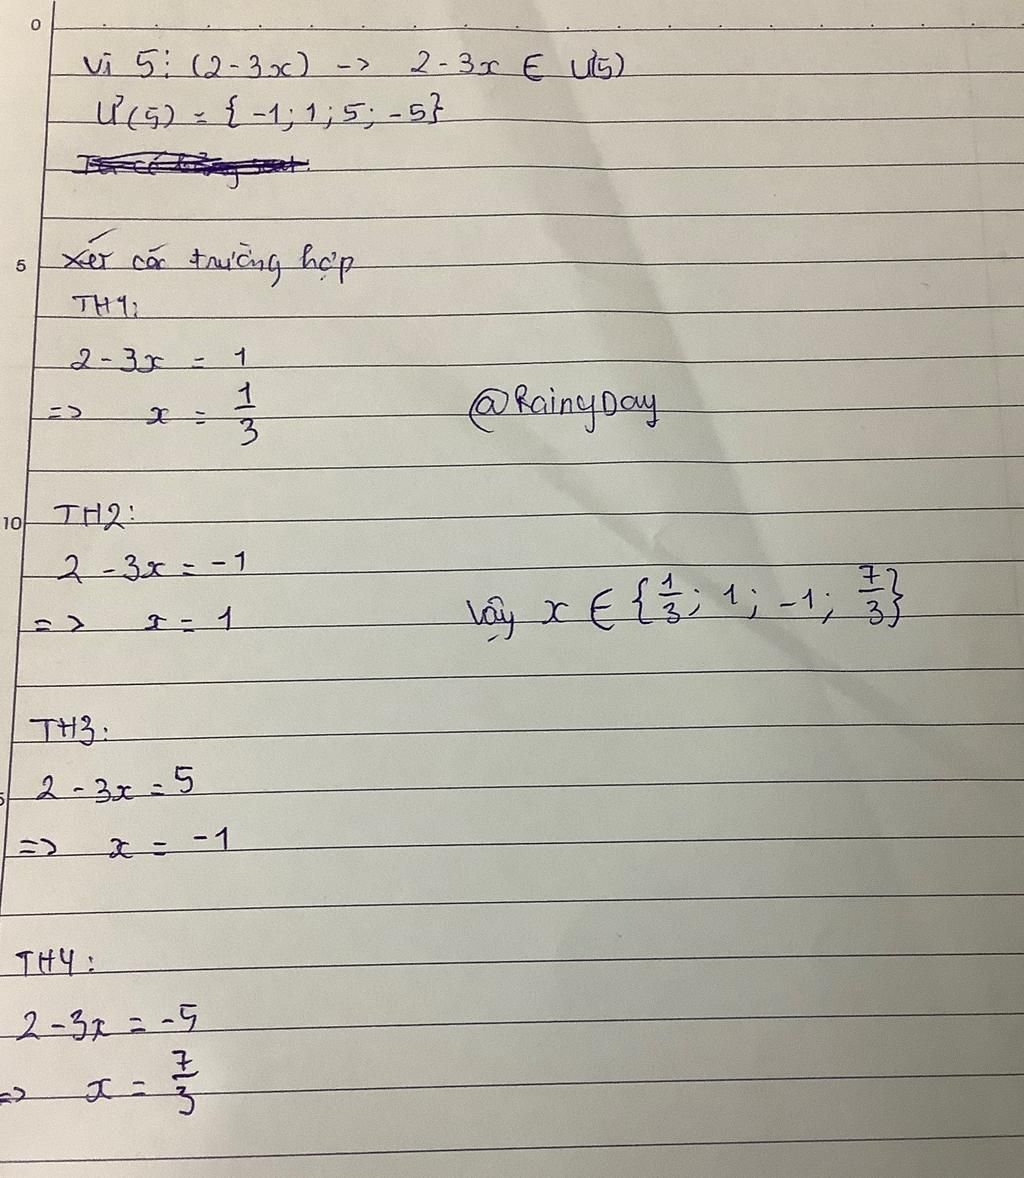 0
Vì 5⋮(2-3x) -> 2-3x ∈ Ư(5)
Ư(5) = { -1; 1; 5; -5}
5
Xét các trường hợp
TH1:
2-3x = 1
=> x = 1/3
@RainyDay
10
TH2:
2 - 3x = -1
=> x = 1
Vậy x ∈ {1/3; 1; -1; 7/3}
TH3:
5
2 - 3x = 5
=> x = -1
TH4:
2-3x = -5
=> x = 7/3